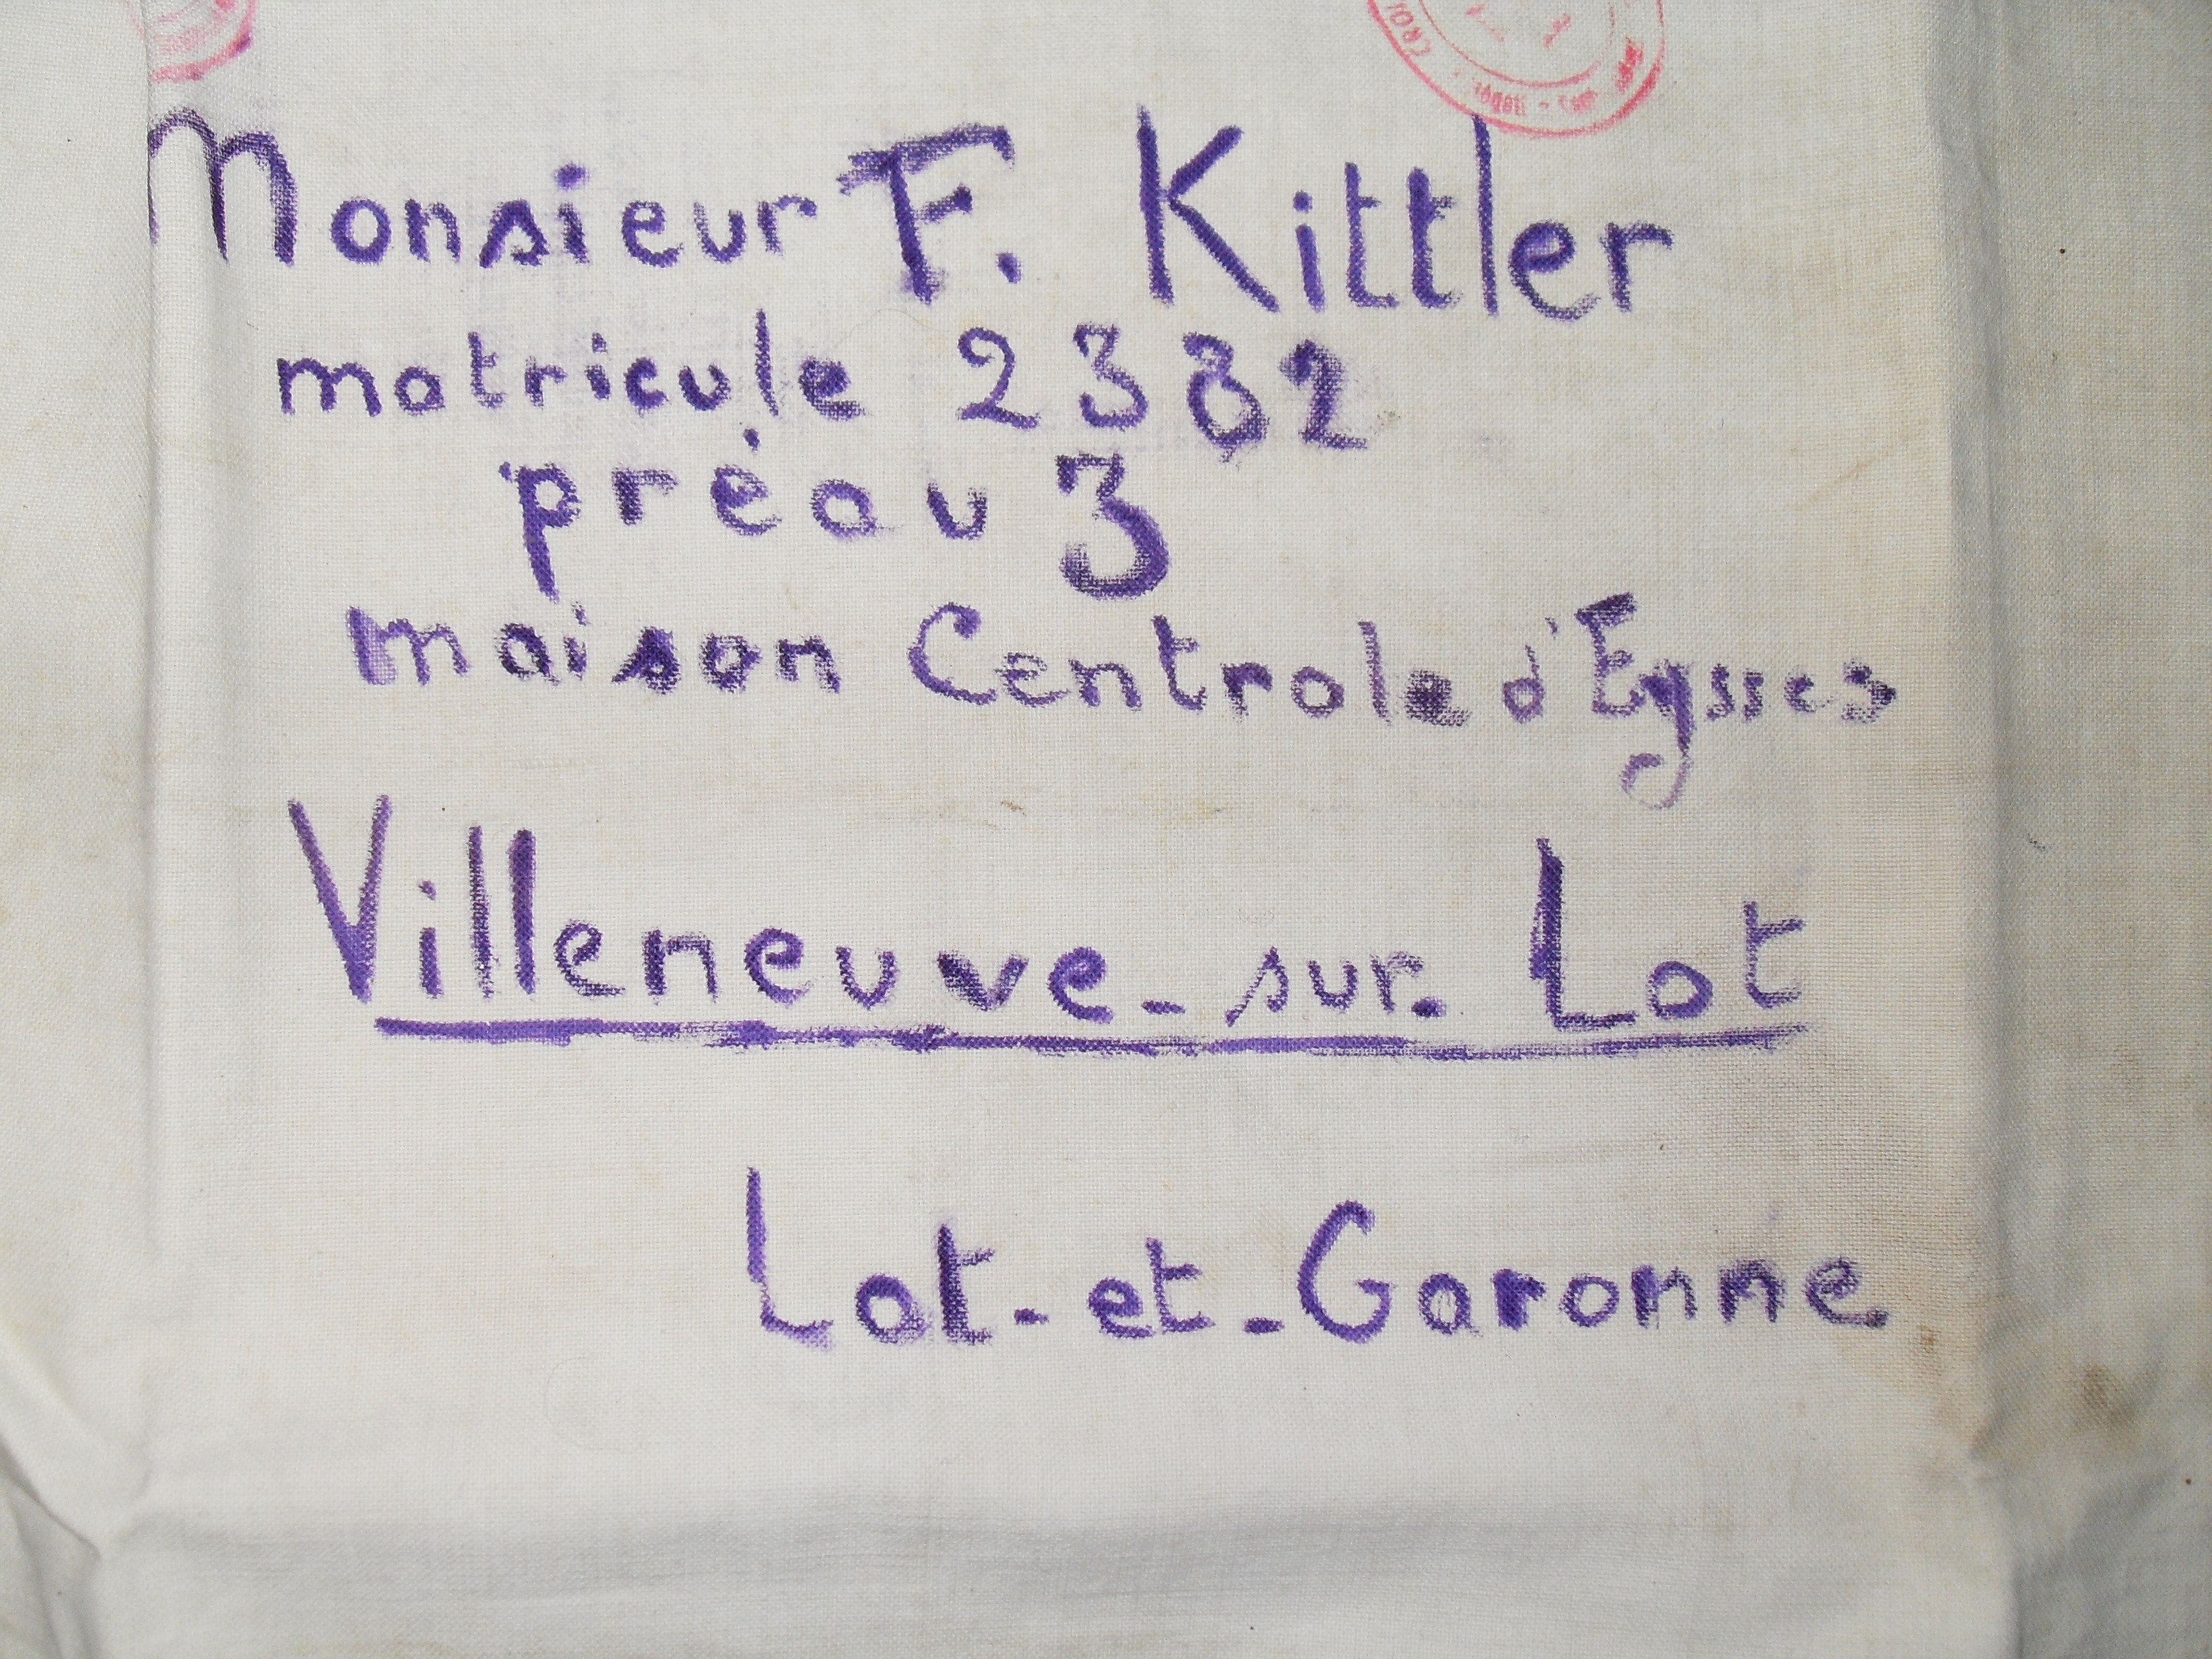 Monsieur F. Kittler
matricule 2382
préau 3
maison Centrale d'Eysses
Villeneuve-sur-Lot
Lot-et-Garonne